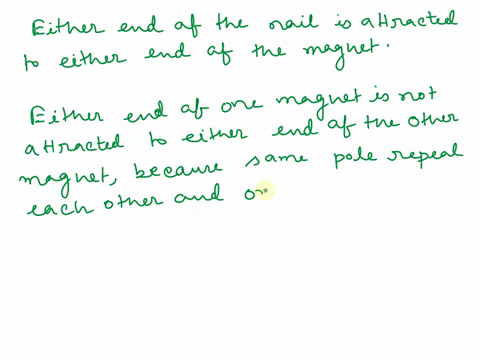 Either end af the nail is attracted
to either end af the magnet.
Either end af one magnet is not
attracted to either end af the other
magnet, because same pole repeal
each other and